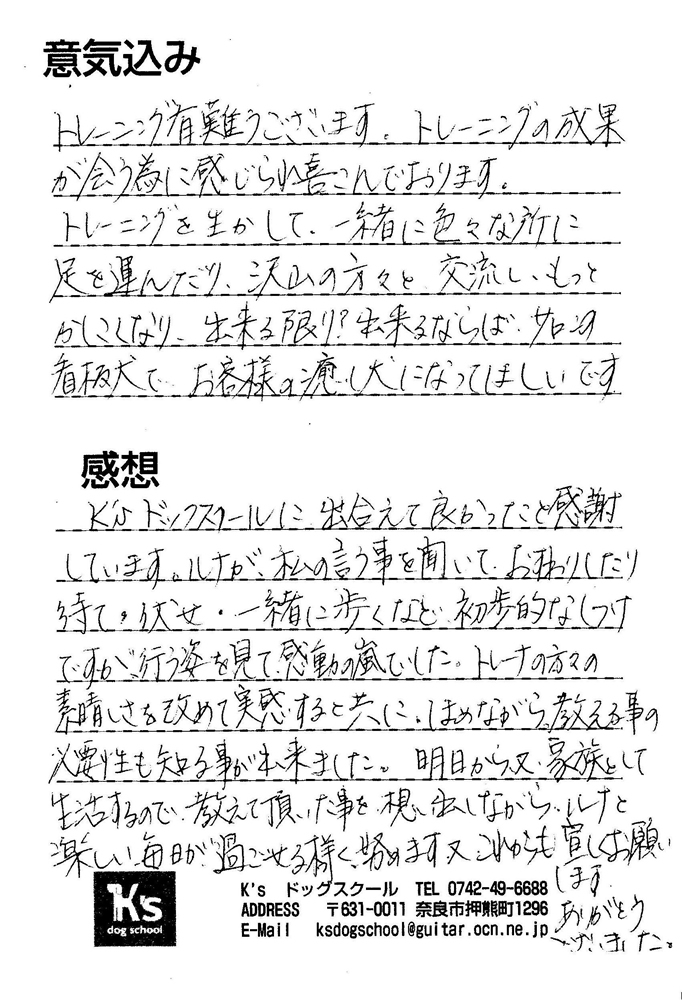 意気込み
トレーニング有難うございます。トレーニングの成果
が会う為に感じられ喜こんでおります。
トレーニングを生かして、一緒に色々な所に
足を運んだり、沢山の方々と交流し、もっと
かしこくなり、出来る限り?出来るならば、サロンの
看板犬で、お客様の癒し犬になってほしいです
感想
K'sドックスクールに出合えて良かったこと感謝
しています。ルナが、私の言う事を聞いて、おすわりしたり
待て・伏せ・一緒に歩くなど初歩的なしつけ
ですが、行う姿を見て、感動の嵐でした。トレーナの方々の
素晴しさを改めて実感すると共に、ほめながら、教える事の
必要性も知る事が出来ました。明日から又、家族として
生活するので、教えて頂いた事を想い出しながら、ルナと
楽しい毎日が過ごせる様く、努めます又これからも宜しくお願い
します。
ありがとう
ございました。
K's dog school
K's ドッグスクール TEL 0742-49-6688
ADDRESS 〒631-0011 奈良市押熊町1296
E-Mail ksdogschool@guitar.ocn.ne.jp